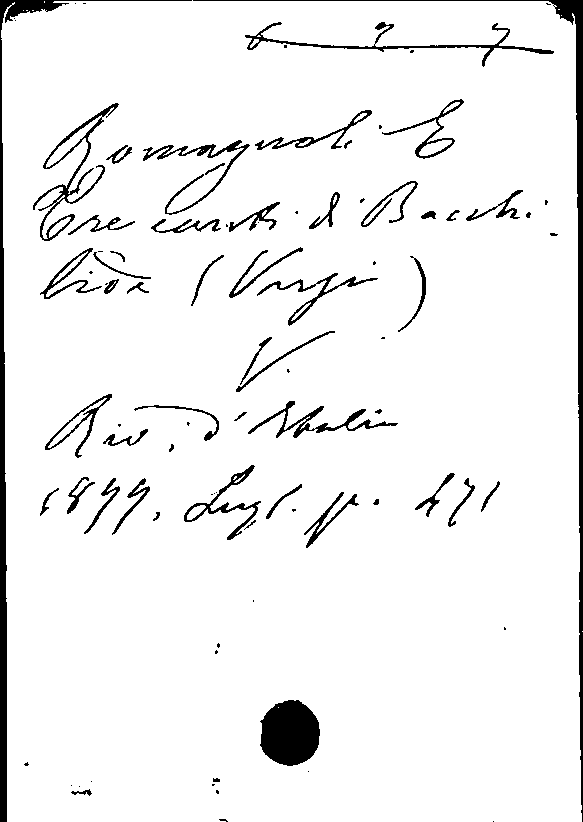 6. 2. 7
Romagnoli E
Tre canti di Bacchi-
lide (Versi)
V.
Riv. d'Italia
1899. Lugl. p. 471